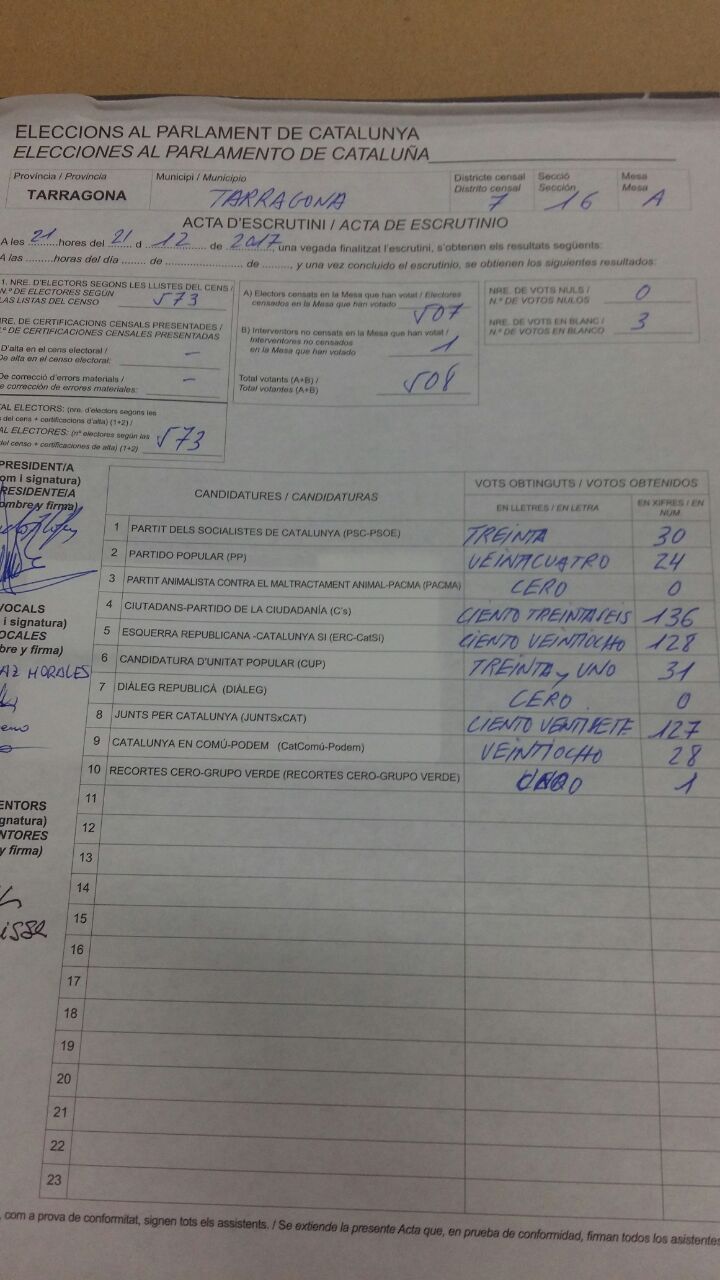 ELECCIONS AL PARLAMENT DE CATALUNYA
ELECCIONES AL PARLAMENTO DE CATALUÑA
Província / Provincia
TARRAGONA
Municipi / Municipio
TARRAGONA
Districte censal
Distrito censal
7
Secció
Sección
16
Mesa
Mesa
A
ACTA D'ESCRUTINI / ACTA DE ESCRUTINIO
A les 21 hores del 21 d 12 de 2017, una vegada finalitzat l'escrutini, s'obtenen els resultats següents:
A las ........horas del día ....... de ........................ de ........., y una vez concluido el escrutinio, se obtienen los siguientes resultados:
1. NRE. D'ELECTORS SEGONS LES LLISTES DEL CENS /
N.º DE ELECTORES SEGÚN
LAS LISTAS DEL CENSO
573
NRE. DE CERTIFICACIONS CENSALS PRESENTADES /
N.º DE CERTIFICACIONES CENSALES PRESENTADAS
D'alta en el cens electoral /
De alta en el censo electoral:
–
De correcció d'errors materials /
De corrección de errores materiales:
–
AL ELECTORS: (nre. d'electors segons les
s del cens + certificacions d'alta) (1+2) /
AL ELECTORES: (nº electores según las
del censo + certificaciones de alta) (1+2)
573
A) Electors censats en la Mesa que han votat / Electores
censados en la Mesa que han votado
507
B) Interventors no censats en la Mesa que han votat /
Interventores no censados
en la Mesa que han votado
1
Total votants (A+B) /
Total votantes (A+B)
508
NRE. DE VOTS NULS /
N.º DE VOTOS NULOS
0
NRE. DE VOTS EN BLANC /
N.º DE VOTOS EN BLANCO
3
PRESIDENT/A
om i signatura)
RESIDENTE/A
ombre y firma)
VOCALS
i signatura)
OCALES
bre y firma)
AZ MORALES
ENTORS
gnatura)
NTORES
y firma)
CANDIDATURES / CANDIDATURAS
VOTS OBTINGUTS / VOTOS OBTENIDOS
EN LLETRES / EN LETRA
EN XIFRES / EN NUM.
1 PARTIT DELS SOCIALISTES DE CATALUNYA (PSC-PSOE) TREINTA 30
2 PARTIDO POPULAR (PP) VEINTICUATRO 24
3 PARTIT ANIMALISTA CONTRA EL MALTRACTAMENT ANIMAL-PACMA (PACMA) CERO 0
4 CIUTADANS-PARTIDO DE LA CIUDADANÍA (C's) CIENTO TREINTASEIS 136
5 ESQUERRA REPUBLICANA -CATALUNYA SÍ (ERC-CatSí) CIENTO VEINTIOCHO 128
6 CANDIDATURA D'UNITAT POPULAR (CUP) TREINTA y UNO 31
7 DIÀLEG REPUBLICÀ (DIÀLEG) CERO 0
8 JUNTS PER CATALUNYA (JUNTSxCAT) CIENTO VENTISIETE 127
9 CATALUNYA EN COMÚ-PODEM (CatComú-Podem) VEINTIOCHO 28
10 RECORTES CERO-GRUPO VERDE (RECORTES CERO-GRUPO VERDE) 1
11
12
13
14
15
16
17
18
19
20
21
22
23
, com a prova de conformitat, signen tots els assistents. / Se extiende la presente Acta que, en prueba de conformidad, firman todos los asistentes